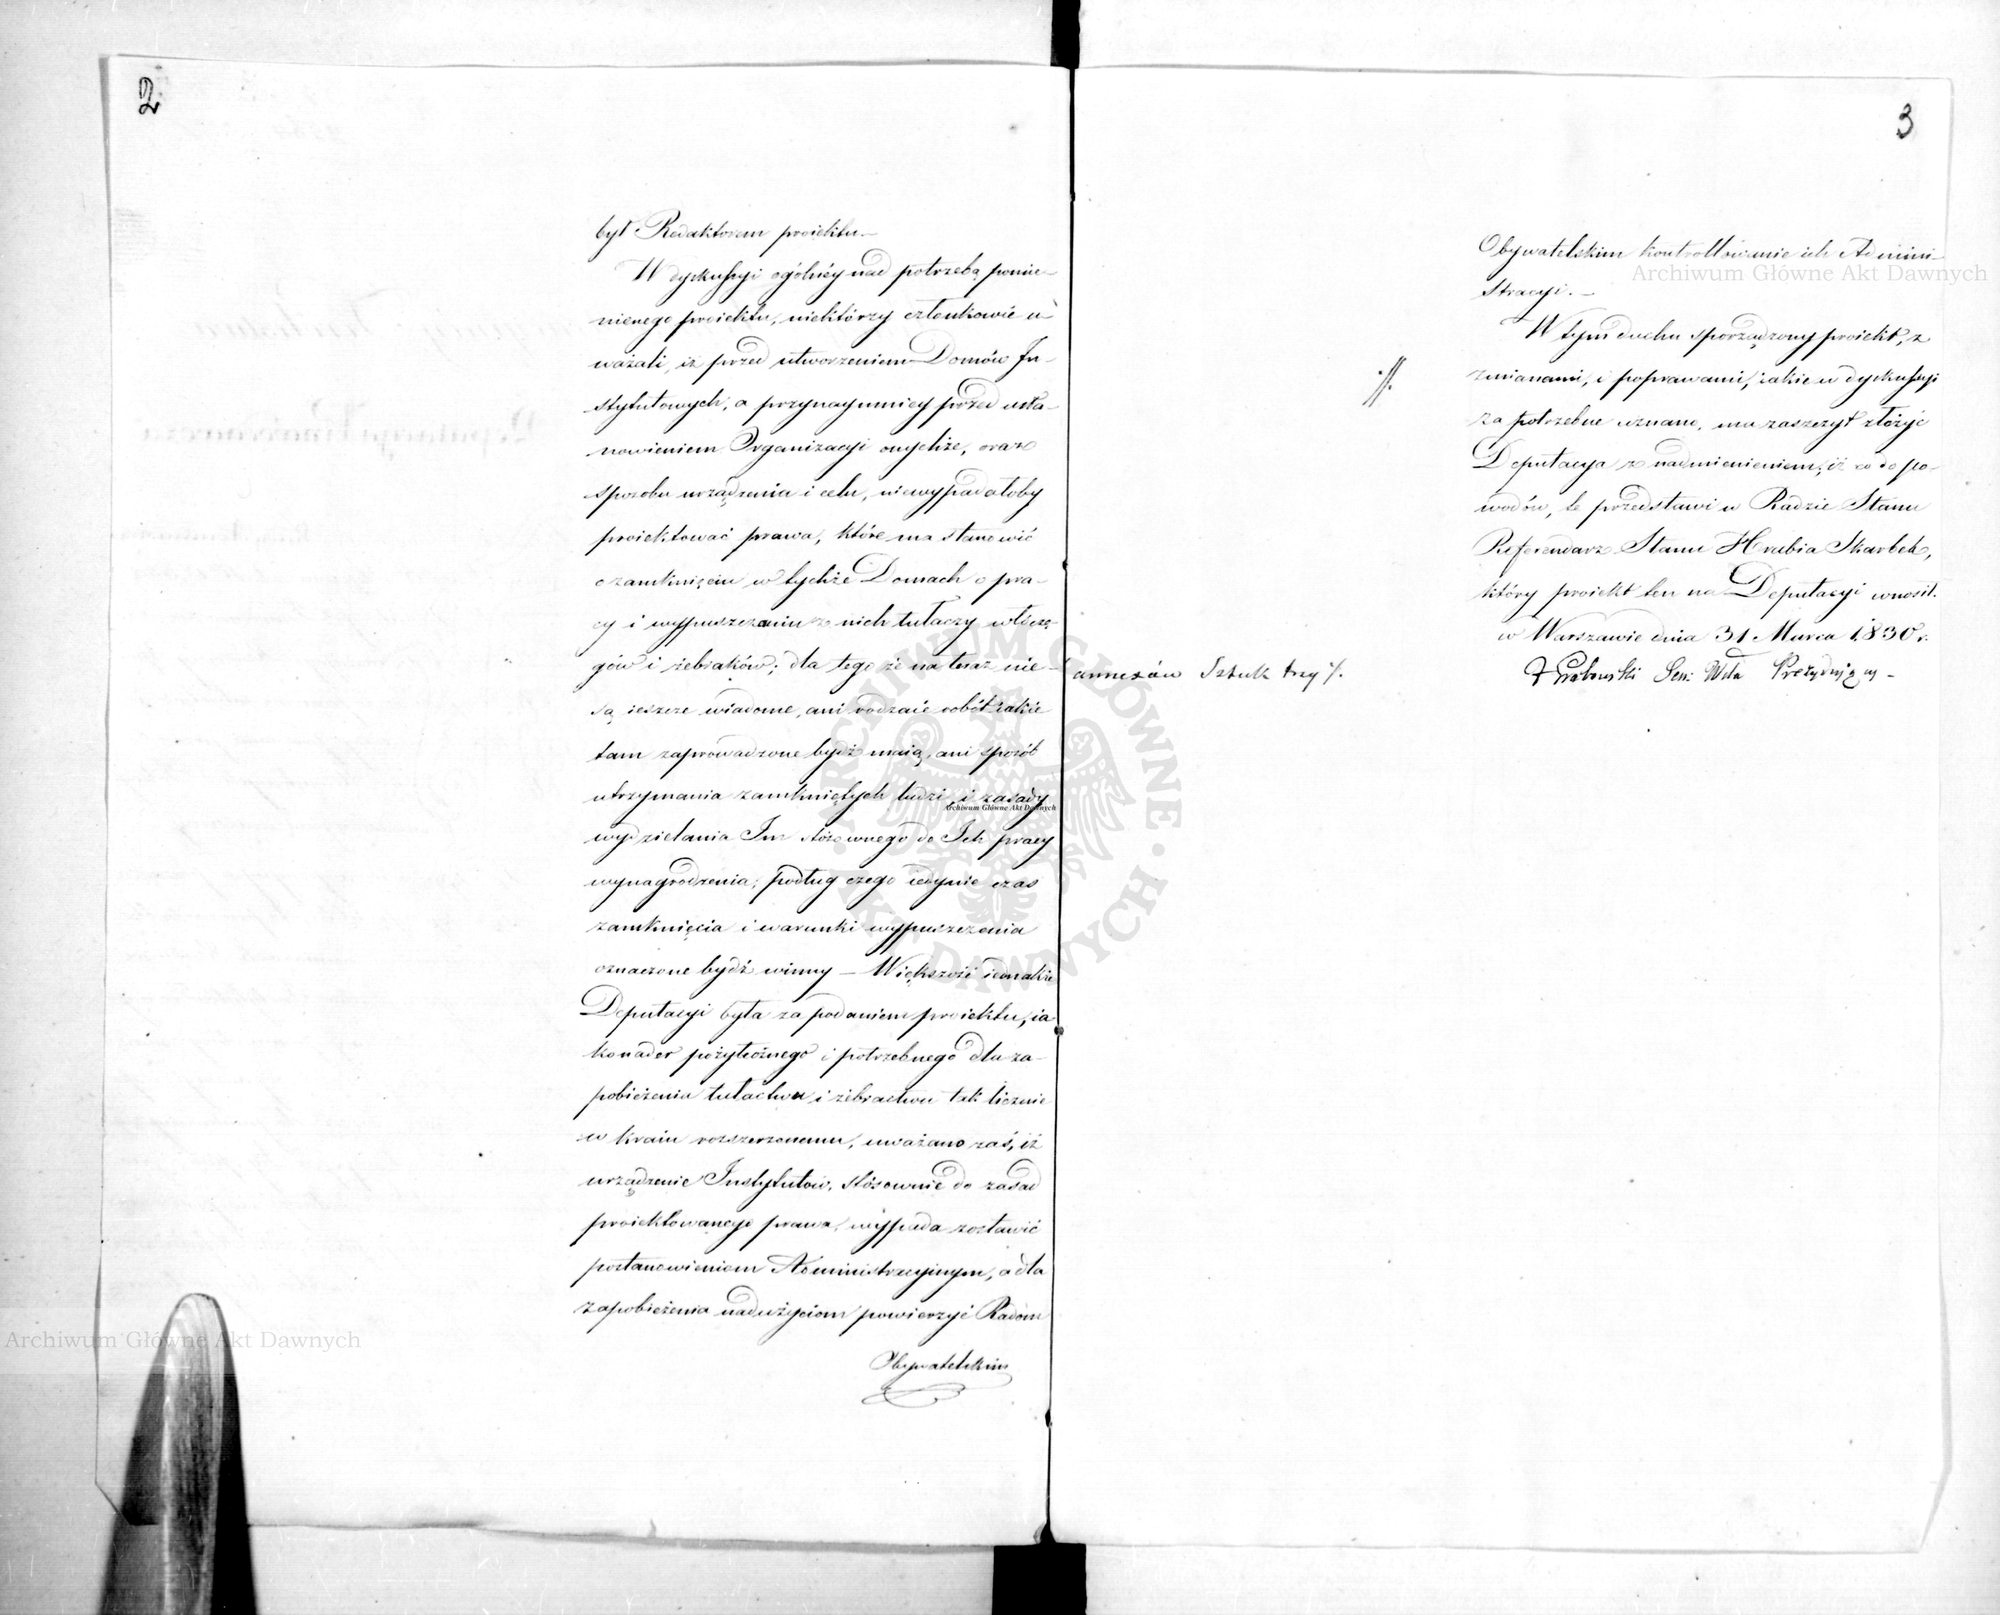 2
był Redaktorem proiektu —
W dyskussyi ogólnéy nad potrzebą pomie-
nionego proiektu, niektórzy członkowie u-
ważali, iż przed utworzeniem Domów In-
stytutowych, a przynaymniey przed usta-
nowieniem Organizacyi onychże, oraz
sposobu urządzenia i celu, niewypadałoby
proiektować prawa, które ma stanowić
o zamknięciu w tychże Domach o pra-
cy i wypuszczaniu z nich tułaczy włóczę-
gów i żebraków; dla tego że na teraz nie-
są ieszcze wiadome, ani rodzaie robót iakie
tam zaprowadzone bydź maią, ani sposób
utrzymania zamkniętych ludzi, i zasady
wydzielania Im stósownego do Ich pracy
wynagrodzenia, podług czego iedynie czas
zamknięcia i warunki wypuszczenia
oznaczone bydź winny — Większość iednakże
Deputacyi była za podaniem proiektu, ia-
ko nader pożytecznego i potrzebnego dla za-
pobieżenia tułactwu i żebractwu tak licznie
w kraiu rozszerzonemu, uważano zaś, iż
urządzenie Instytutów, stósownie do zasad
proiektowanego prawa, wypada zostawić
postanowieniom Administracyinym, a dla
zapobieżenia nadużyciom powierzyć Radom
Obywatelskim
3
Obywatelskim kontrollowanie ich Admini-
stracyi. —
W tym duchu sporządzony proiekt, z
zmianami, i poprawami, iakie w dyskussyi
za potrzebne uznano, ma zaszczyt złożyć
Deputacya z nadmienieniem, iż co do po-
wodów, te przedstawi w Radzie Stanu
Referendarz Stanu Hrabia Skarbek,
który proiekt ten na Deputacyi wnosił.
w Warszawie dnia 31 Marca 1830 r.
Grabowski Sen: Wda Prezyduiący —
annexów Sztuk trzy
Archiwum Główne Akt Dawnych
Archiwum Główne Akt Dawnych
Archiwum Główne Akt Dawnych
ARCHIWUM GŁÓWNE · AKT DAWNYCH ·